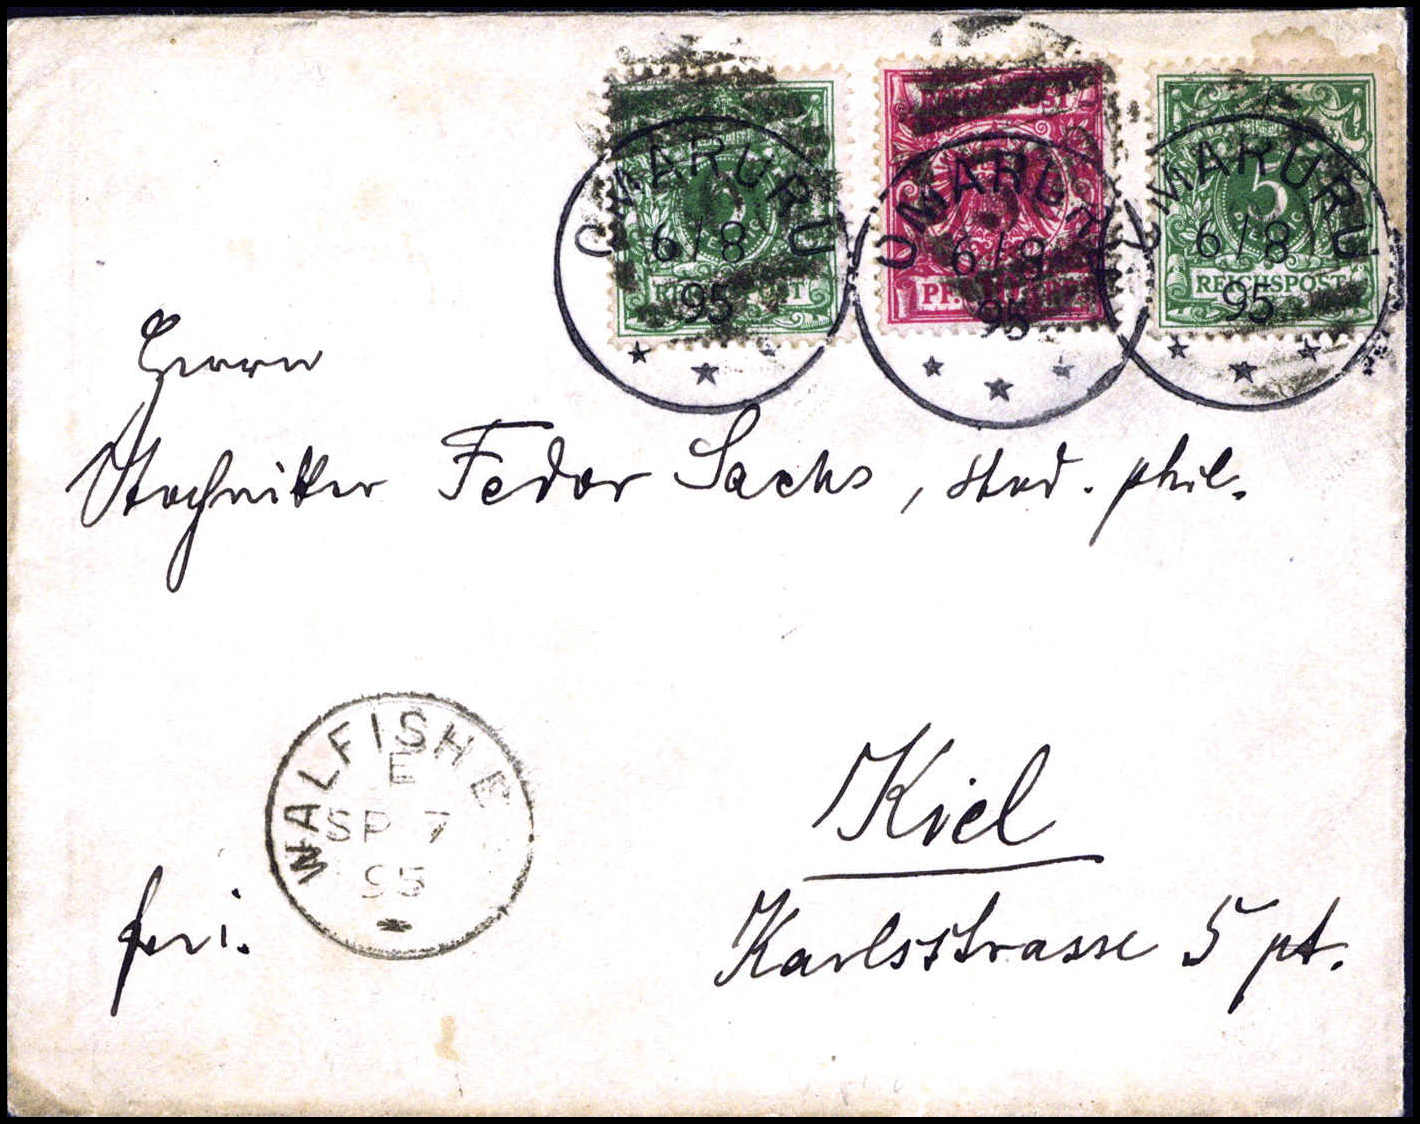 REICHSPOST
OMARURU
6/8
95
5
REICHSPOST
OMARURU
6/8
95
5
REICHSPOST
OMARURU
6/8
95
Herrn
Techniker Fedor Sachs, stud. phil.
WALFISHE
E
SP 7
95
Kiel
frei.
Karlsstrasse 5 pt.